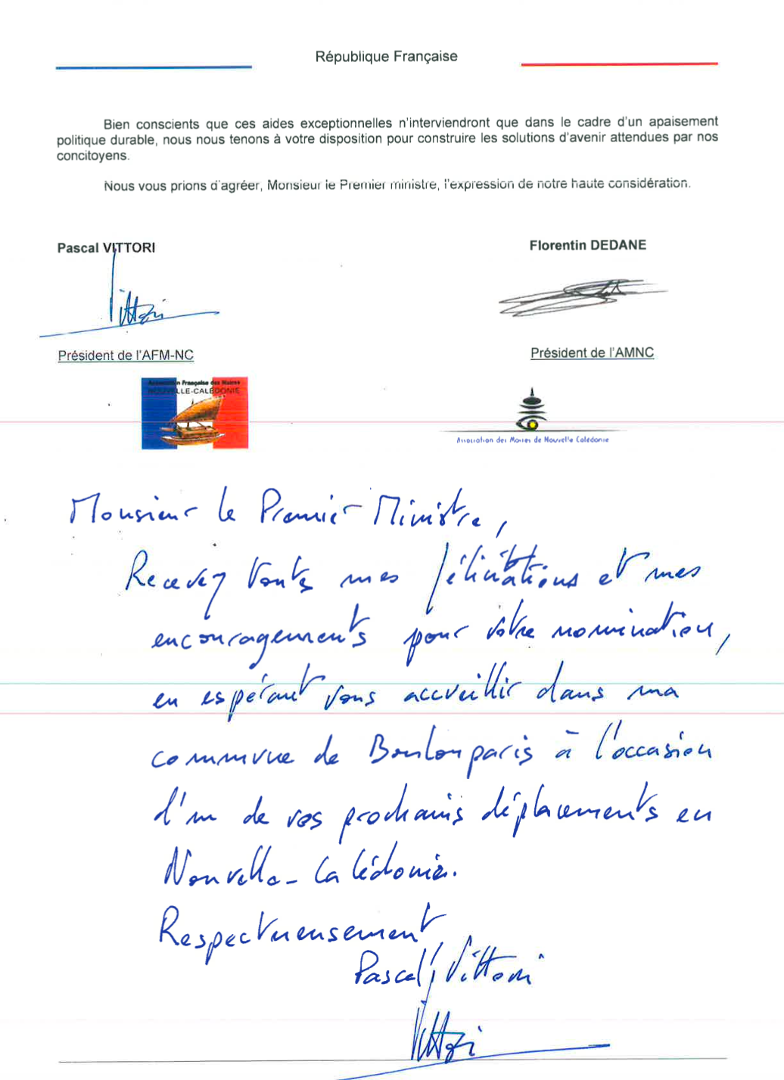 République Française
Bien conscients que ces aides exceptionnelles n'interviendront que dans le cadre d'un apaisement
politique durable, nous nous tenons à votre disposition pour construire les solutions d'avenir attendues par nos
concitoyens.
Nous vous prions d'agréer, Monsieur le Premier ministre, l'expression de notre haute considération.
Pascal VITTORI
Florentin DEDANE
Vittori
Président de l'AFM-NC
Président de l'AMNC
Association Française des Maires
NOUVELLE-CALÉDONIE
Association des Maires de Nouvelle Calédonie
Monsieur le Premier Ministre,
Recevez toutes mes félicitations et mes
encouragements pour votre nomination,
en espérant vous accueillir dans ma
commune de Boulouparis à l'occasion
d'un de vos prochains déplacements en
Nouvelle-Calédonie.
Respectueusement
Pascal Vittori
Vittori